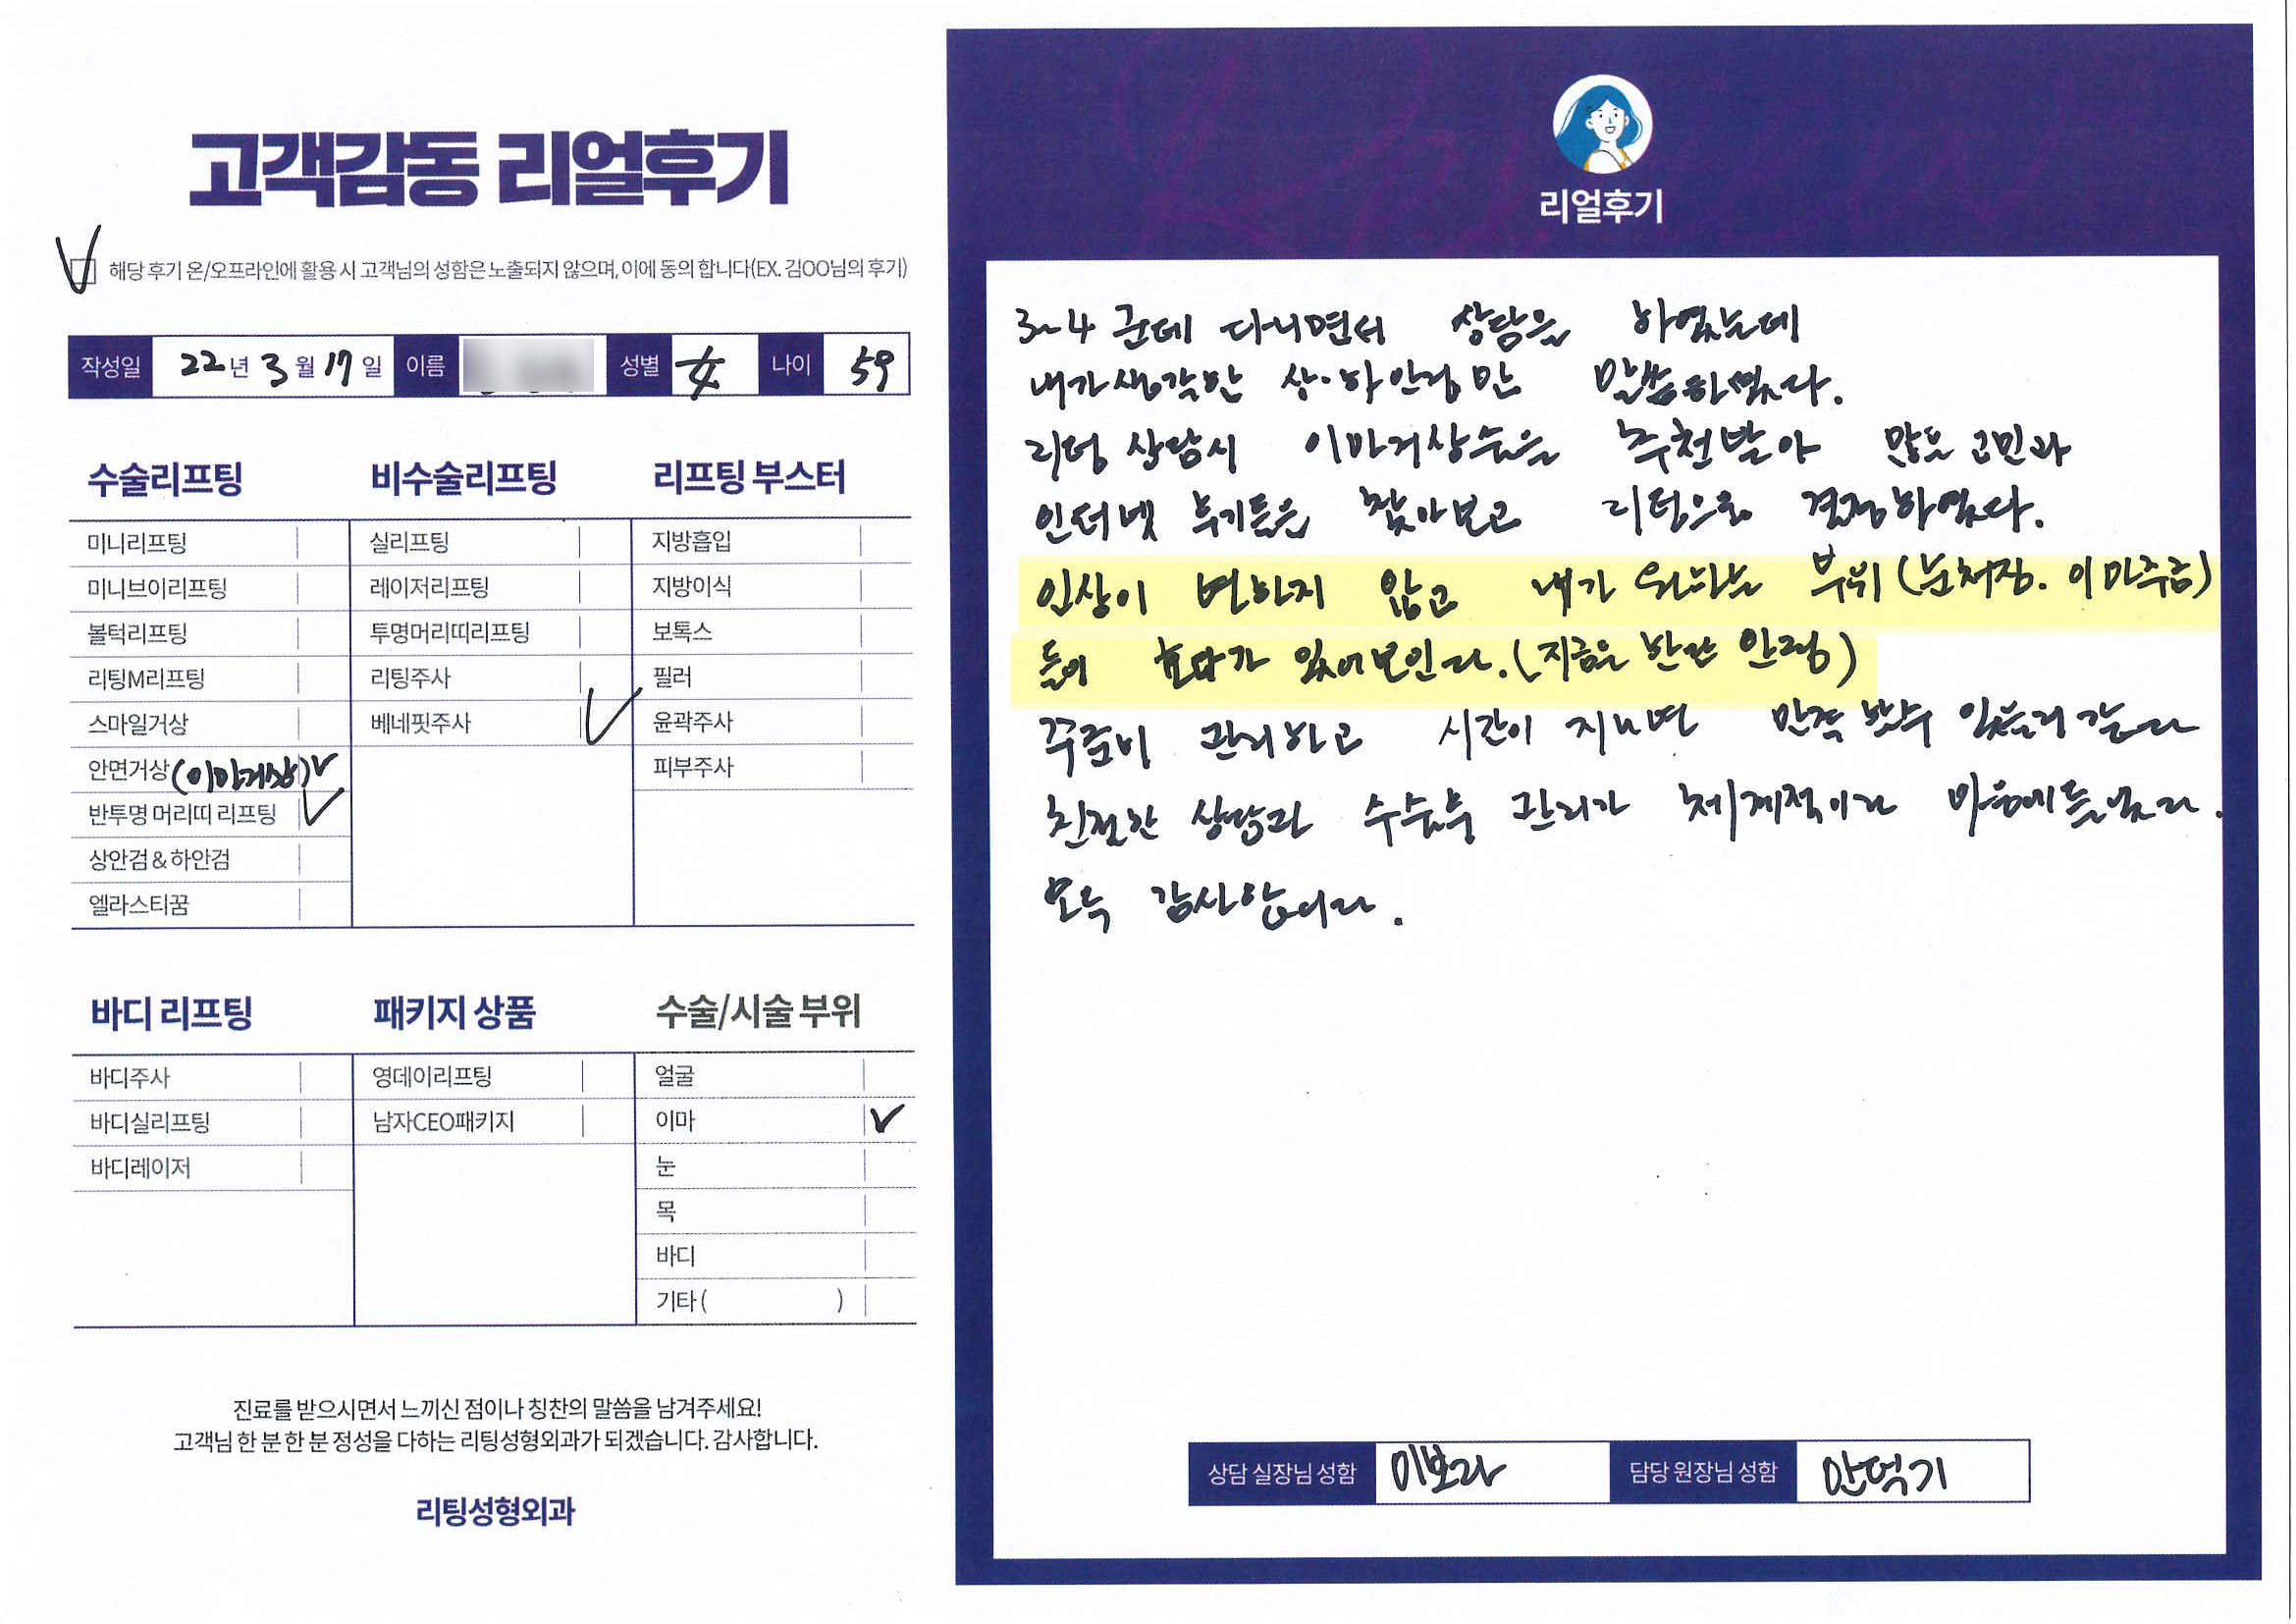 고객감동 리얼후기
해당 후기 온/오프라인에 활용 시 고객님의 성함은 노출되지 않으며, 이에 동의 합니다(EX. 김OO님의 후기)
작성일 22년 3월 17일 이름 성별 女 나이 59
수술리프팅
미니리프팅
미니브이리프팅
볼턱리프팅
리팅M리프팅
스마일거상
안면거상(이마거상)
반투명 머리띠 리프팅
상안검 & 하안검
엘라스티꿈
비수술리프팅
실리프팅
레이저리프팅
투명머리띠리프팅
리팅주사
베네핏주사
리프팅 부스터
지방흡입
지방이식
보톡스
필러
윤곽주사
피부주사
바디 리프팅
바디주사
바디실리프팅
바디레이저
패키지 상품
영데이리프팅
남자CEO패키지
수술/시술 부위
얼굴
이마
눈
목
바디
기타 ( )
진료를 받으시면서 느끼신 점이나 칭찬의 말씀을 남겨주세요!
고객님 한 분 한 분 정성을 다하는 리팅성형외과가 되겠습니다. 감사합니다.
리팅성형외과
리얼후기
3~4 군데 다니면서 상담을 하였는데
내가 생각한 상·하안검만 말씀하셨다.
리팅 상담시 이마거상술을 추천받아 많은 고민과
인터넷 후기들을 찾아보고 리팅으로 결정하였다.
인상이 변하지 않고 내가 원하는 부위(눈처짐. 이마주름)
들이 효과가 있어보인다.(지금은 반만 안정)
꾸준히 관리하고 시간이 지나면 만족 할수 있을거 같다
친절한 상담과 수술후 관리가 체계적이라 마음에 들었다.
모두 감사합니다.
상담 실장님 성함 이보라
담당 원장님 성함 안덕기